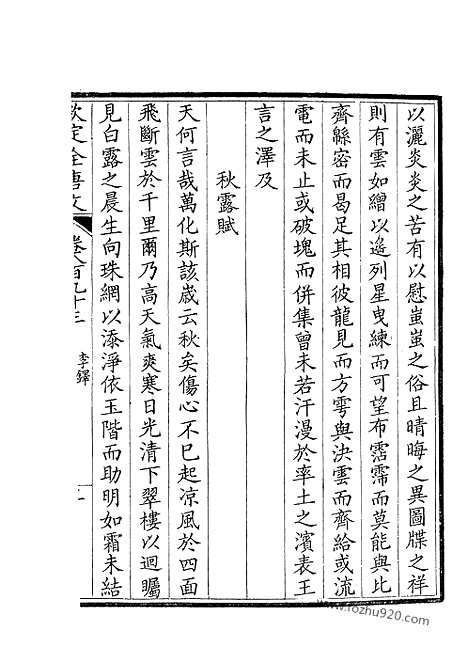 以灑炎炎之苦有以慰蚩蚩之俗且晴晦之異圖牒之祥
則有雲如繒以遙列星曳練而可望布霑霈而莫能與比
齊緜密而曷足其相彼龍見而方雩與決雲而齊給或流
電而未止或破塊而併集曾未若汗漫於率土之濱表王
言之澤及
秋露賦
天何言哉萬化斯該歲云秋矣傷心不巳起凉風於四面
飛斷雲於千里爾乃高天氣爽寒日光清下翠樓以迴矚
見白露之晨生向珠網以添淨依玉階而助明如霜未結
欽定全唐文
卷八百九十三
李鐸
www.1ozhu920.com